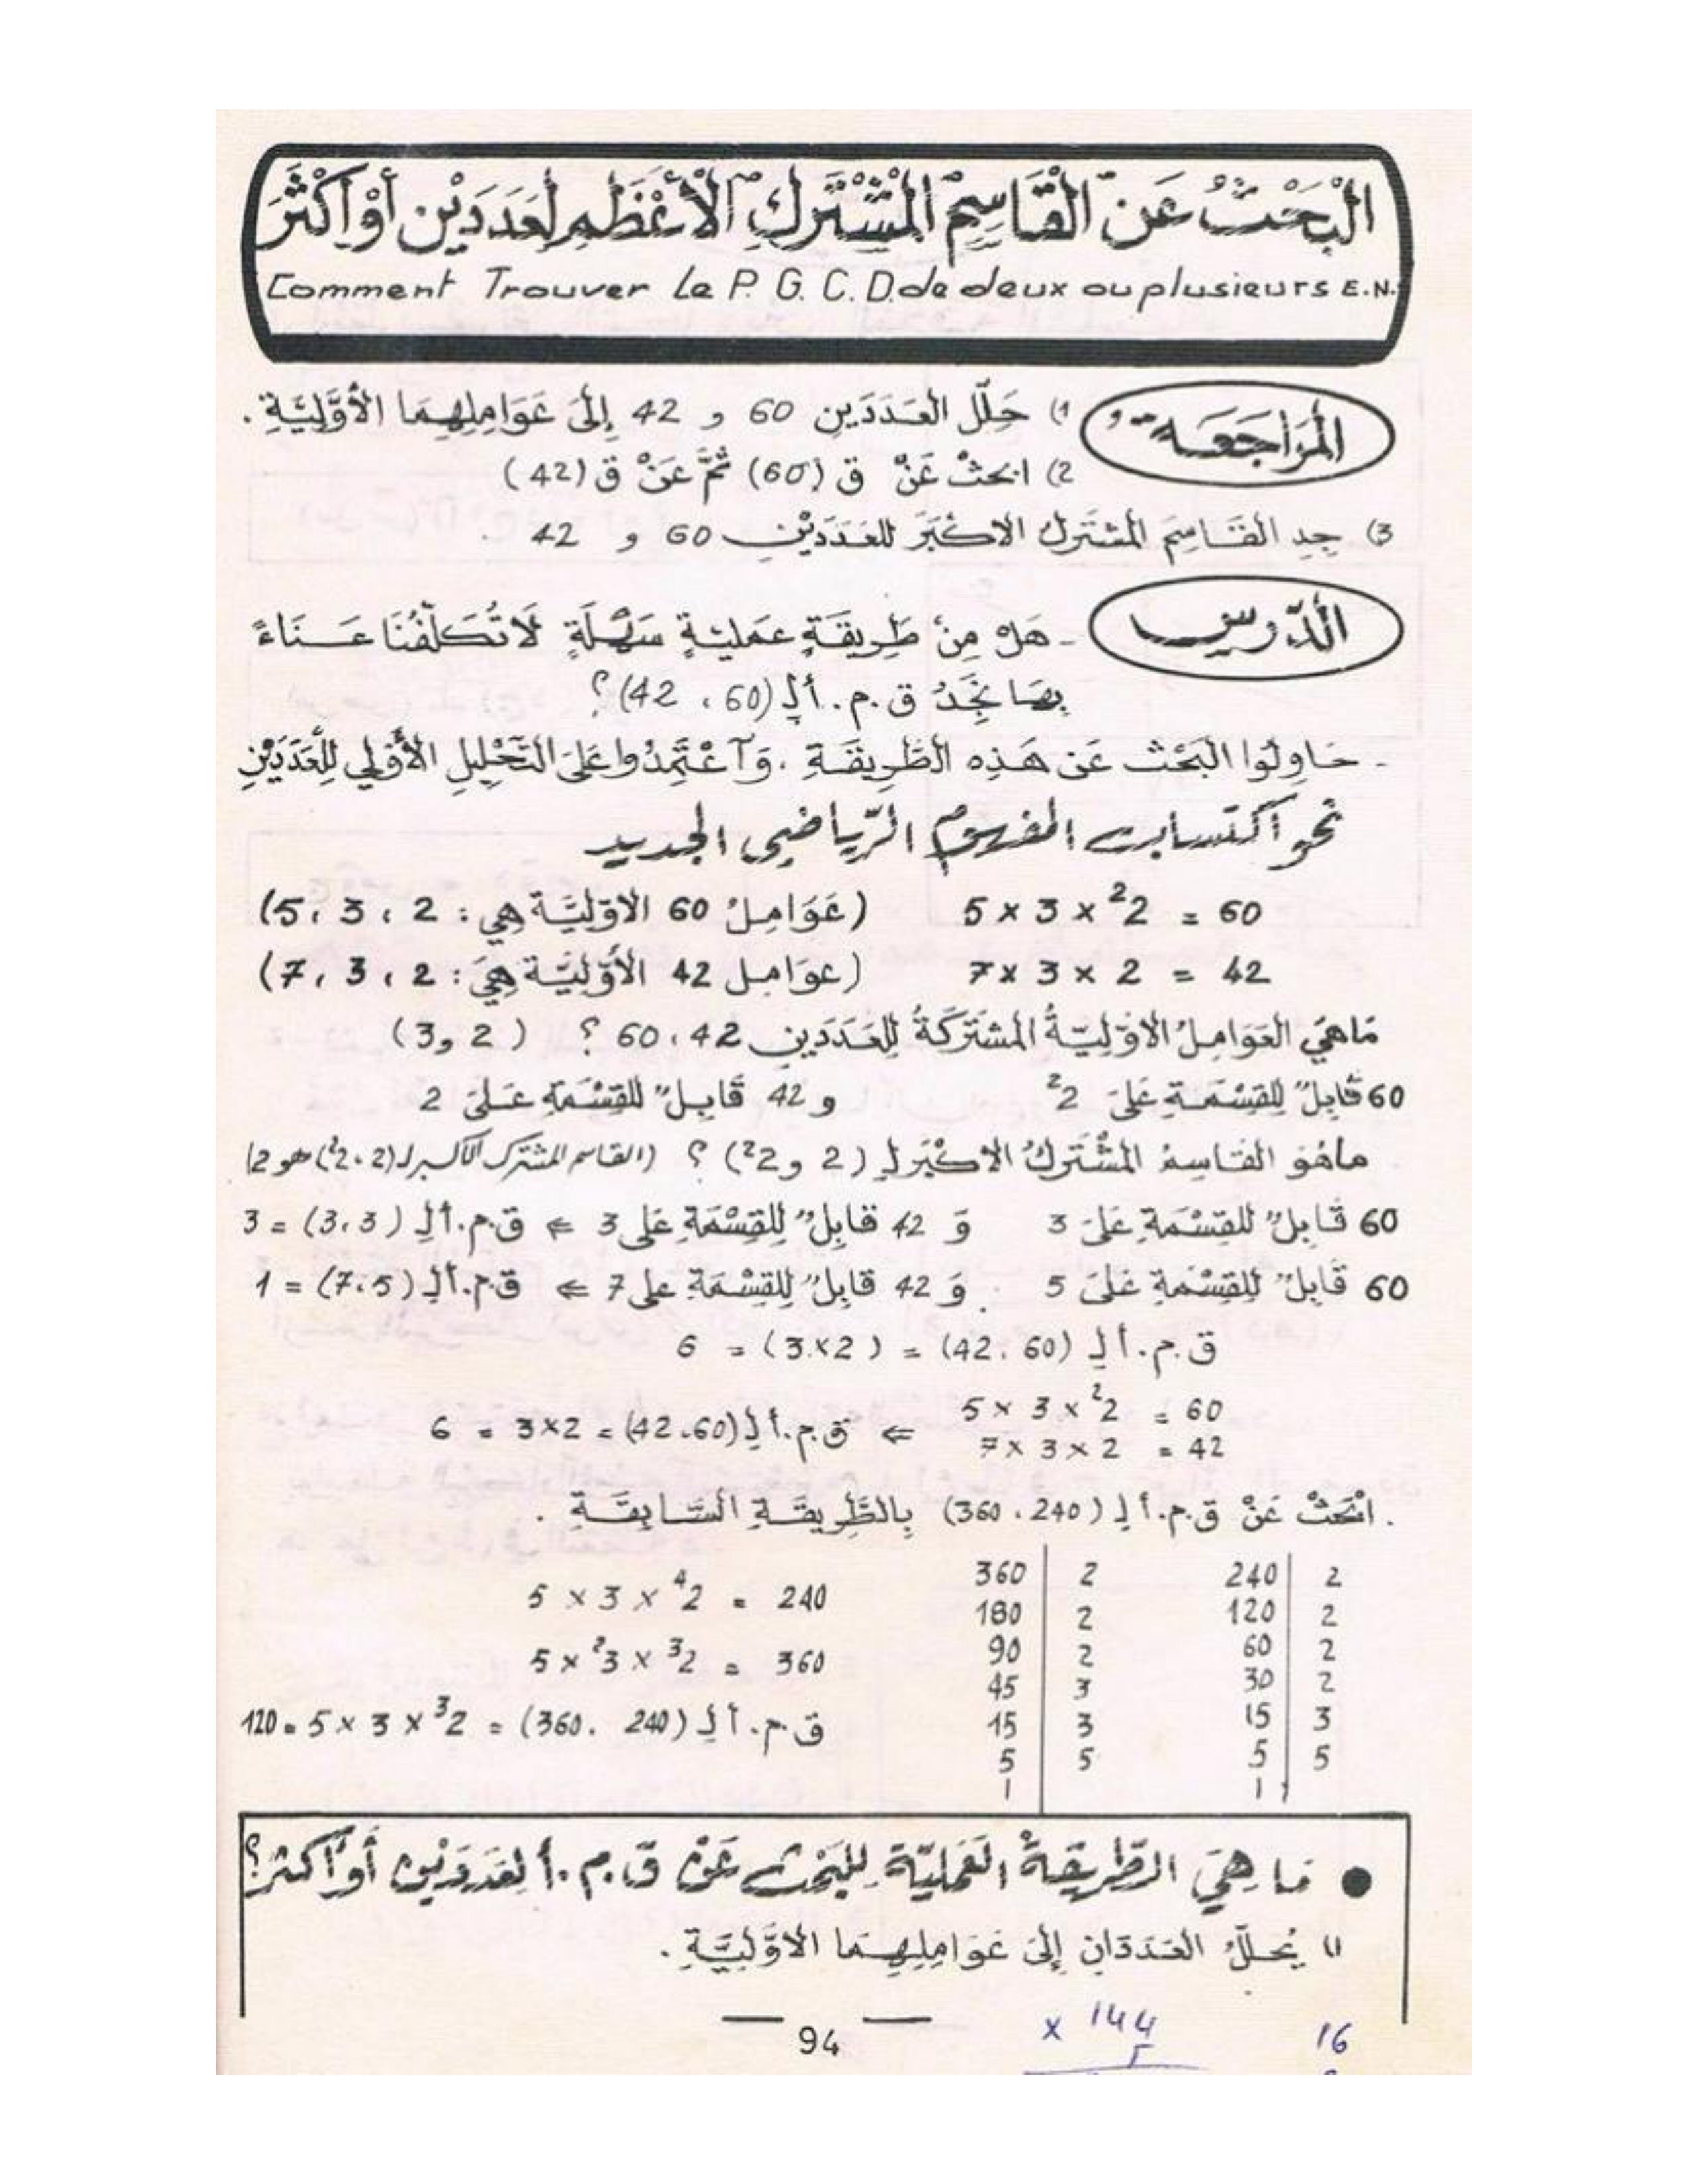 الْبَحْثُ عَنْ الْقَاسِمِ الْمُشْتَرَكِ الْأَعْظَمِ لِعَدَدَيْنِ أَوْ أَكْثَرَ
Comment Trouver Le P. G. C. D. de deux ou plusieurs E.N.
المُرَاجَعَة
1) حَلِّلْ العَدَدَيْنِ 60 و 42 إِلَى عَوَامِلِهِمَا الأَوَّلِيَّةِ .
2) ابحثْ عَنْ ق (60) ثُمَّ عَنْ ق (42)
3) جِدِ القَاسِمَ المُشْتَرَكَ الاكْبَرَ لِلعَدَدَيْنِ 60 و 42 .
الدَّرس
- هَلْ مِنْ طَرِيقَةٍ عَمَلِيَّةٍ سَهْلَةٍ لَا تُكَلِّفُنَا عَنَاءً
بِهَا نَجِدُ ق.م.أ لِـ (60 ، 42) ؟
- حَاوِلُوا البَحْثَ عَن هَذِهِ الطَّرِيقَةِ . وَآعْتَمِدُوا عَلَى التَّحْلِيلِ الأَوَّلِي لِلْعَدَدَيْنِ
نحو آكتساب المفهوم الرّياضي الجديد
60 = 2² × 3 × 5 (عَوَامِلُ 60 الاوّلِيَّة هِي : 2 ، 3 ، 5)
42 = 2 × 3 × 7 (عوَامِل 42 الأَوَّلِيَّة هِيَ : 2 ، 3 ، 7)
مَا هيَ العَوَامِلُ الاوّلِيّةُ المُشتَرَكَةُ لِلعَدَدَينِ 42 ، 60 ؟ ( 2 و 3 )
60 قَابِلٌ لِلقِسْمَةِ عَلَى 2² و 42 قَابِلٌ لِلقِسْمَةِ عَلَى 2
ماهُوَ القَاسِمُ المُشْتَرَكُ الاكْبَر لِـ ( 2 و 2² ) ؟ (القاسم المشترك الأكبر لـ (2 ، 2²) هو 2)
60 قَابِلٌ لِلقِسْمَةِ عَلَى 3 وَ 42 قَابِلٌ لِلقِسْمَةِ عَلى 3 ⇐ ق.م.أ لِـ (3 ، 3) = 3
60 قَابِلٌ لِلقِسْمَةِ عَلَى 5 وَ 42 قَابِلٌ لِلقِسْمَةِ على 7 ⇐ ق.م.أ لِـ (5 ، 7) = 1
ق.م.أ لِـ (60 ، 42) = (2 × 3) = 6
60 = 2² × 3 × 5
42 = 2 × 3 × 7 ⇐ ق.م.أ لِـ (60 ، 42) = 2 × 3 = 6
. ابْحَثْ عَنْ ق.م.أ لِـ (240 ، 360) بِالطَّرِيقَةِ السَّابِقَةِ .
240 | 2 360 | 2
120 | 2 180 | 2
60 | 2 90 | 2
30 | 2 45 | 3
15 | 3 15 | 3
5 | 5 5 | 5
1 | 1 |
240 = 2⁴ × 3 × 5
360 = 2³ × 3² × 5
ق.م.أ لِـ (240 ، 360) = 2³ × 3 × 5 = 120
● مَا هِيَ الطَّرِيقَةُ العَمَلِيَّة لِلبَحْث عَنْ ق.م.أ لِعَدَدَيْن أَوْ أَكثر ؟
1) يُحلَّلُ العَدَدَانِ إِلَى عَوَامِلِهِمَا الاوَّلِيَّةِ .
— 94 —
x 144
5
16